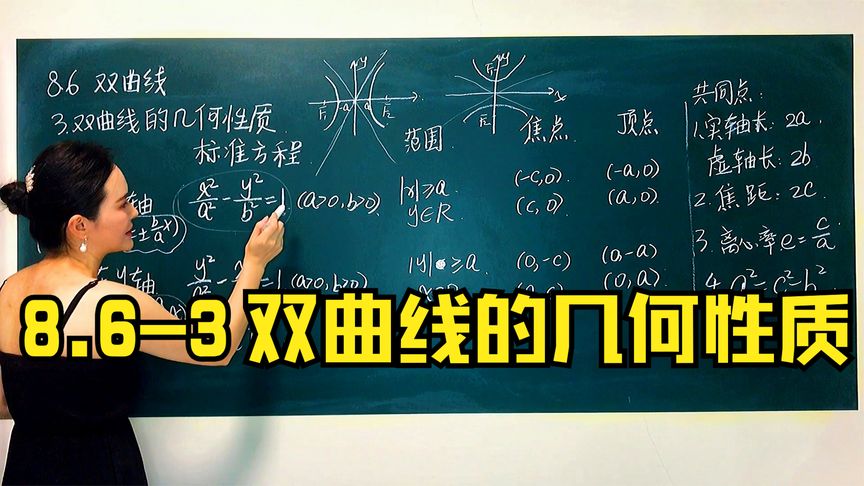 8.6 双曲线
3.双曲线的几何性质
标准方程
范围 焦点 顶点
y
F₁ -a a F₂
y
F₁
F₂
x
轴
x²/a² - y²/b² = 1 (a>0, b>0)
|x|≥a
y∈R
(-c,0)
(c,0)
(-a,0)
(a,0)
±b/a x)
y轴
= 1 (a>0, b>0)
|y| ≥a
(0,-c)
(0,-a)
(0,a)
共同点:
1.实轴长: 2a.
虚轴长: 2b
2.焦距: 2c.
3.离心率e=c/a
4.a²=c²-b²
8.6-3 双曲线的几何性质